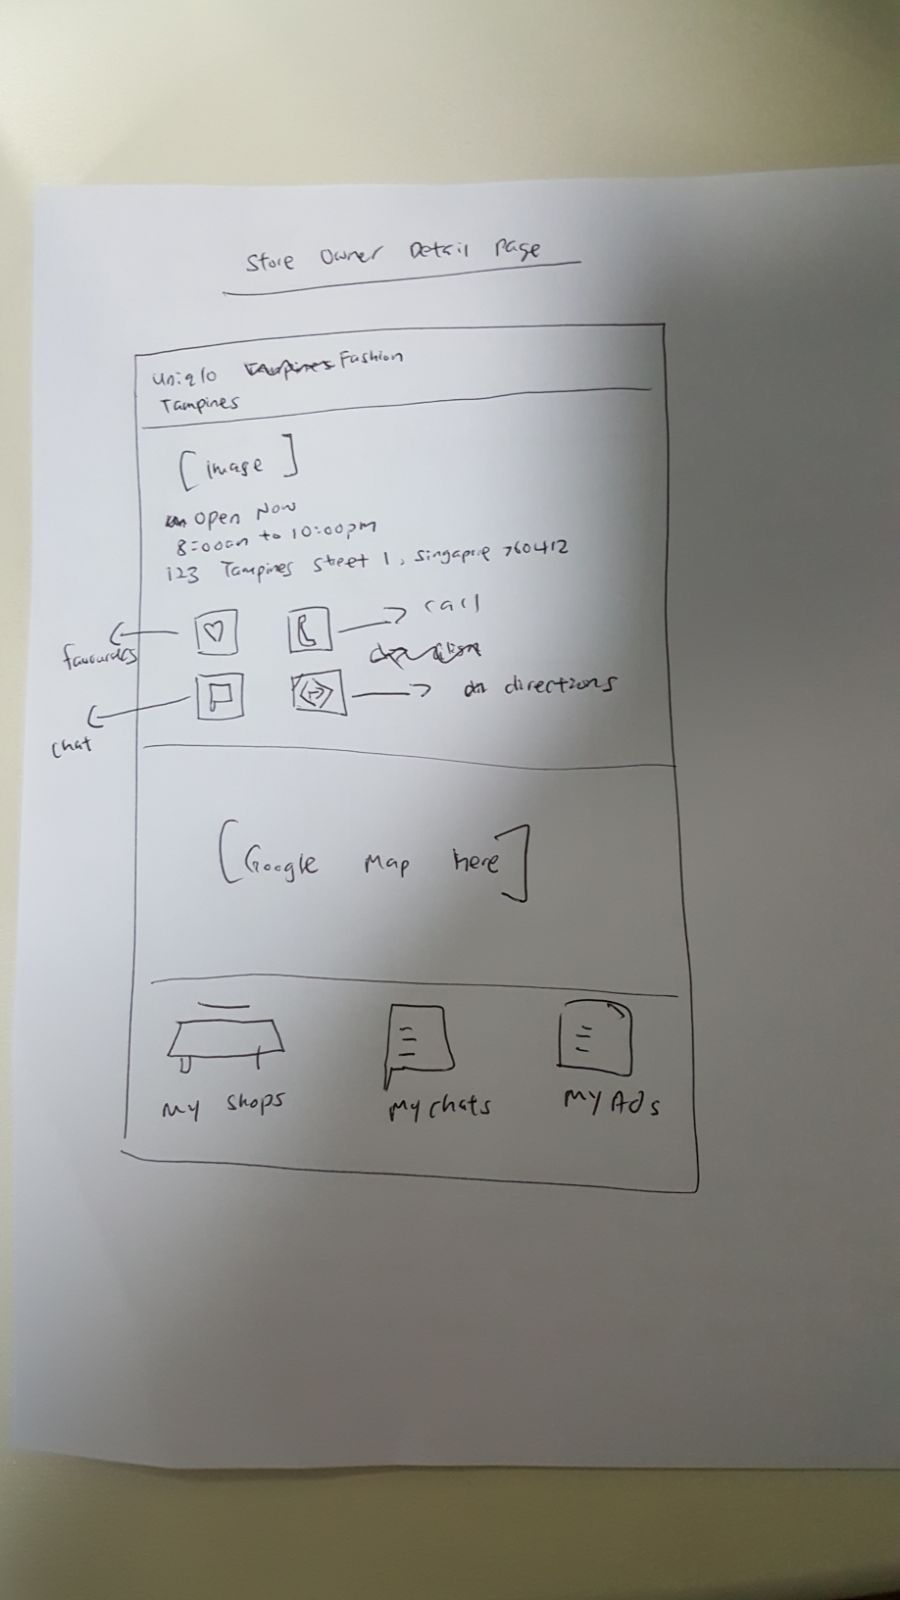 Store Owner Detail Page
Uniqlo Fashion
Tampines
[image]
Open Now
8:00am to 10:00pm
123 Tampines street 1, Singapore 760412
call
favourites
directions
chat
[Google Map here]
My Shops
My chats
My Ads